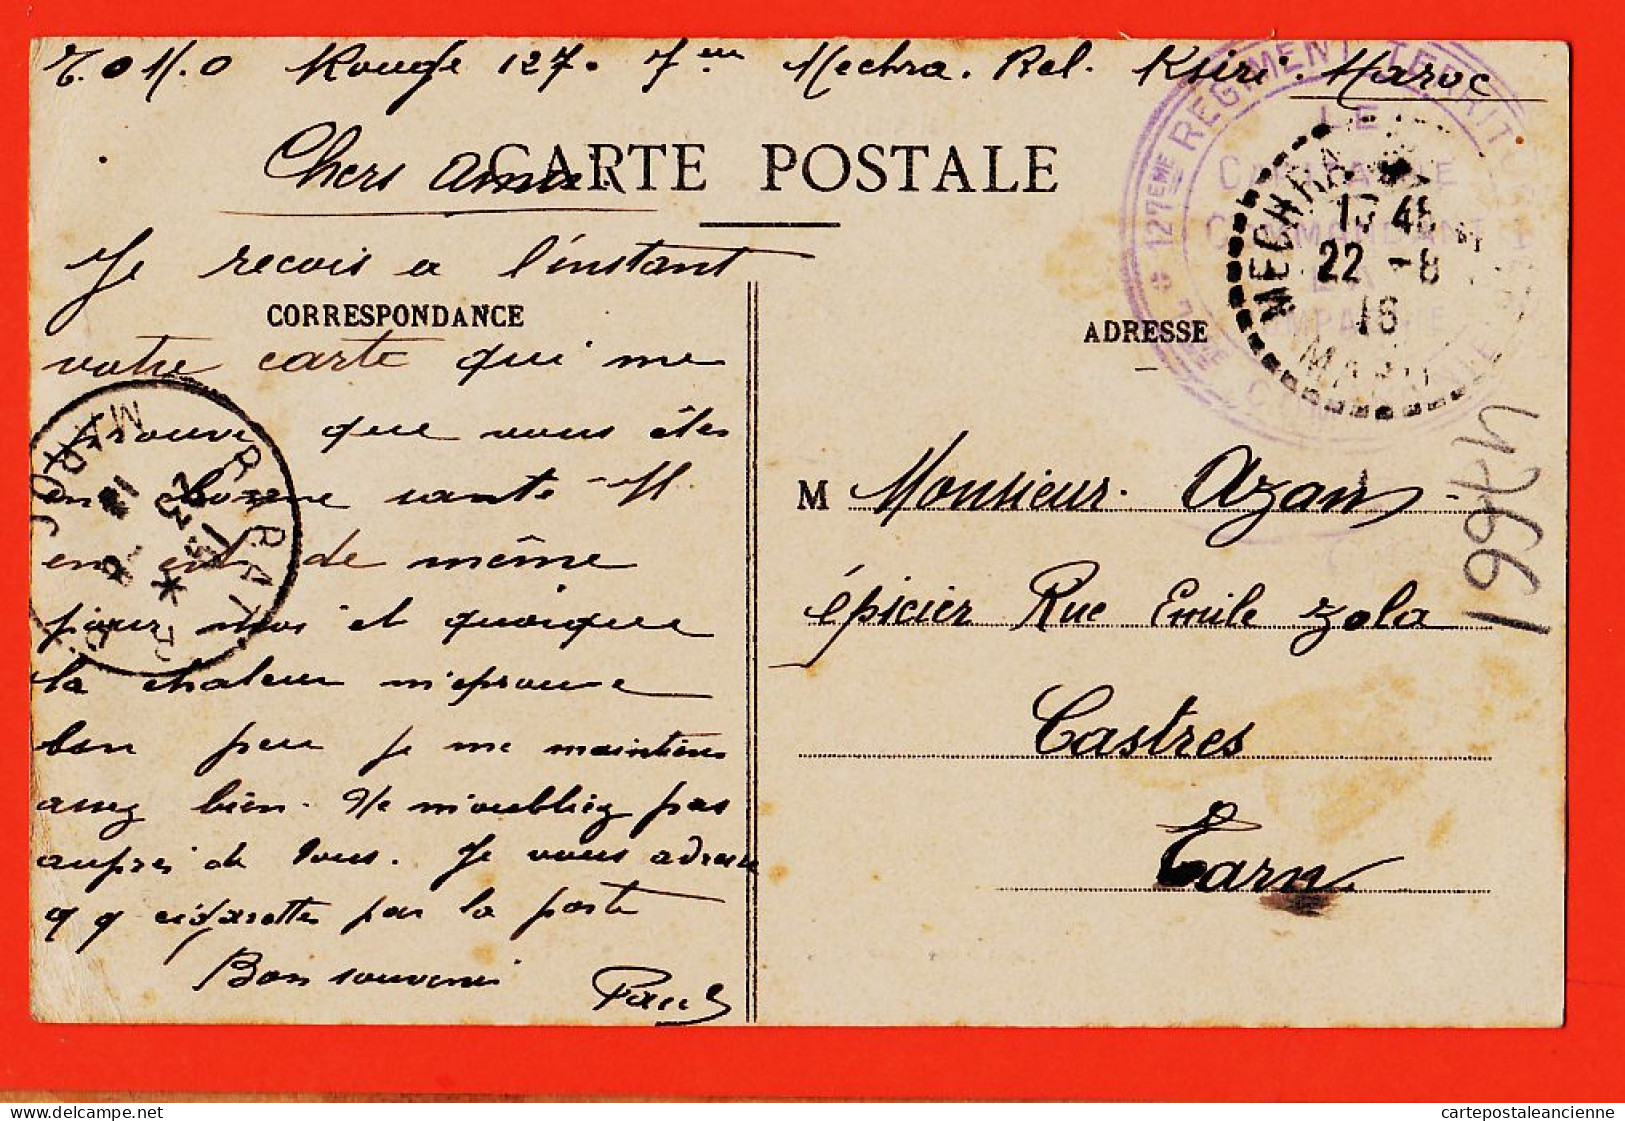 T. O M. O Rouge 127. 7me Mechra. Bel. Ksiri. Maroc
CARTE POSTALE
Chers amis
Je recois a l'instant
CORRESPONDANCE
votre carte qui me
prouve que vous êtes
en bonne santé M.
en est de même
pour moi et quoique
la chaleur m'eprouve
bon peu je me maintiens
assez bien. Ne m'oubliez pas
aupres de tous. Je vous adresse
q q cigarettes par la poste
Bon souvenir
Paul
ADRESSE
M Monsieur. Azam
épicier Rue Emile Zola
Castres
Tarn
127EME REGIMENT TERRITORIAL
LE
CAPITAINE
COMMANDANT
MECHRA
22 -8
16
MAROC
RABAT R.P.
MAROC
23
cartepostaleancienne
www.delcampe.net